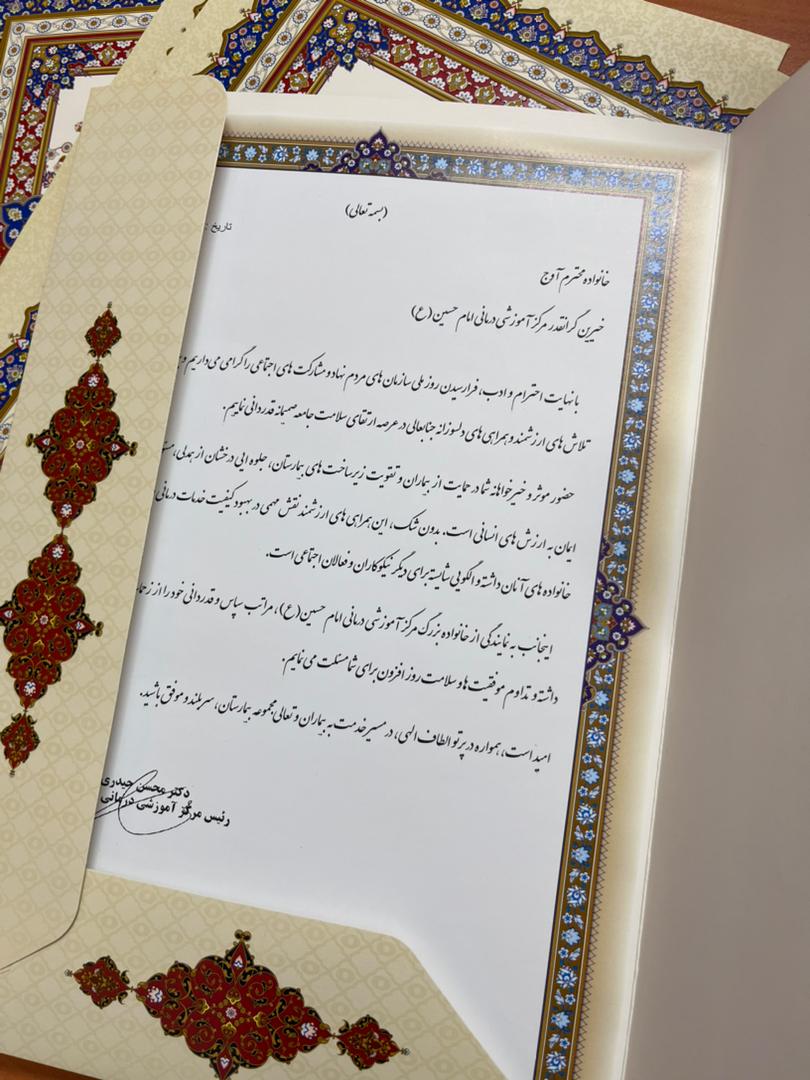 (بسمه تعالی)
تاریخ :
خانواده محترم آوج
خیرین گرانقدر مرکز آموزشی درمانی امام حسین (ع)
با نهایت احترام و ادب، فرارسیدن روز ملی سازمان های مردم نهاد و مشارکت های اجتماعی را گرامی می داریم و
تلاش های ارزشمند و همراهی های دلسوزانه جنابعالی در عرصه ارتقای سلامت جامعه صمیمانه قدردانی نماییم.
حضور موثر و خیرخواهانه شما در حمایت از بیماران و تقویت زیرساخت های بیمارستان، جلوه ایی درخشان از همدلی،
ایمان به ارزش های انسانی است. بدون شک، این همراهی های ارزشمند نقش مهمی در بهبود کیفیت خدمات درمانی
خانواده های آنان داشته و الگویی شایسته برای دیگر نیکوکاران و فعالان اجتماعی است.
اینجانب به نمایندگی از خانواده بزرگ مرکز آموزشی درمانی امام حسین (ع)، مراتب سپاس و قدردانی خود را از
داشته و تداوم موفقیت ها و سلامت روز افزون برای شما مسئلت می نمایم.
امید است، همواره در پرتو الطاف الهی، در مسیر خدمت به بیماران و تعالی مجموعه بیمارستان، سربلند و موفق باشید.
دکتر محسن حیدری
رئیس مرکز آموزشی درمانی